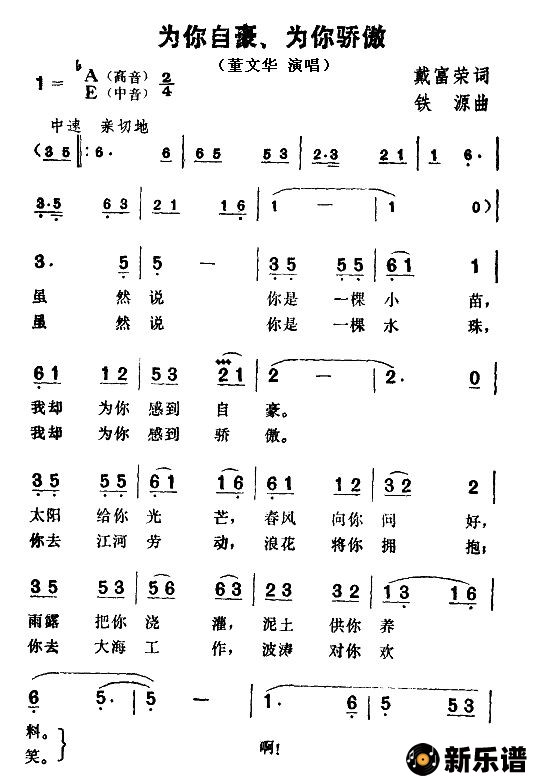 为你自豪、为你骄傲
（董文华 演唱）
1＝ ♭A（高音） 2/4
E（中音）
戴富荣词
铁 源曲
中速 亲切地
(3 5 ‖: 6· 6 | 6 5 5 3 | 2·3 2 1 | 1 6·
3·5 6 3 | 2 1 1 6 | 1 － | 1 0) |
3· 5 | 5 － | 3 5 5 5 | 6 1 1 |
虽 然 说 你是 一棵 小 苗，
虽 然 说 你是 一棵 水 珠，
6 1 1 2 | 5 3 2 1 | 2 － | 2· 0 |
我却 为你 感到 自 豪。
我却 为你 感到 骄 傲。
3 5 5 5 | 6 1 1 6 | 6 1 1 2 | 3 2 2 |
太阳 给你 光 芒，春风 向你 问 好，
你去 江河 劳 动，浪花 将你 拥 抱；
3 5 5 3 | 5 6 6 3 | 2 3 5 3 | 1 3 1 6 |
雨露 把你 浇 灌，泥土 供你 养
你去 大海 工 作，波涛 对你 欢
6 5· | 5 － | 1· 6 | 5 5 3 |
料。
笑。
啊！
新乐谱